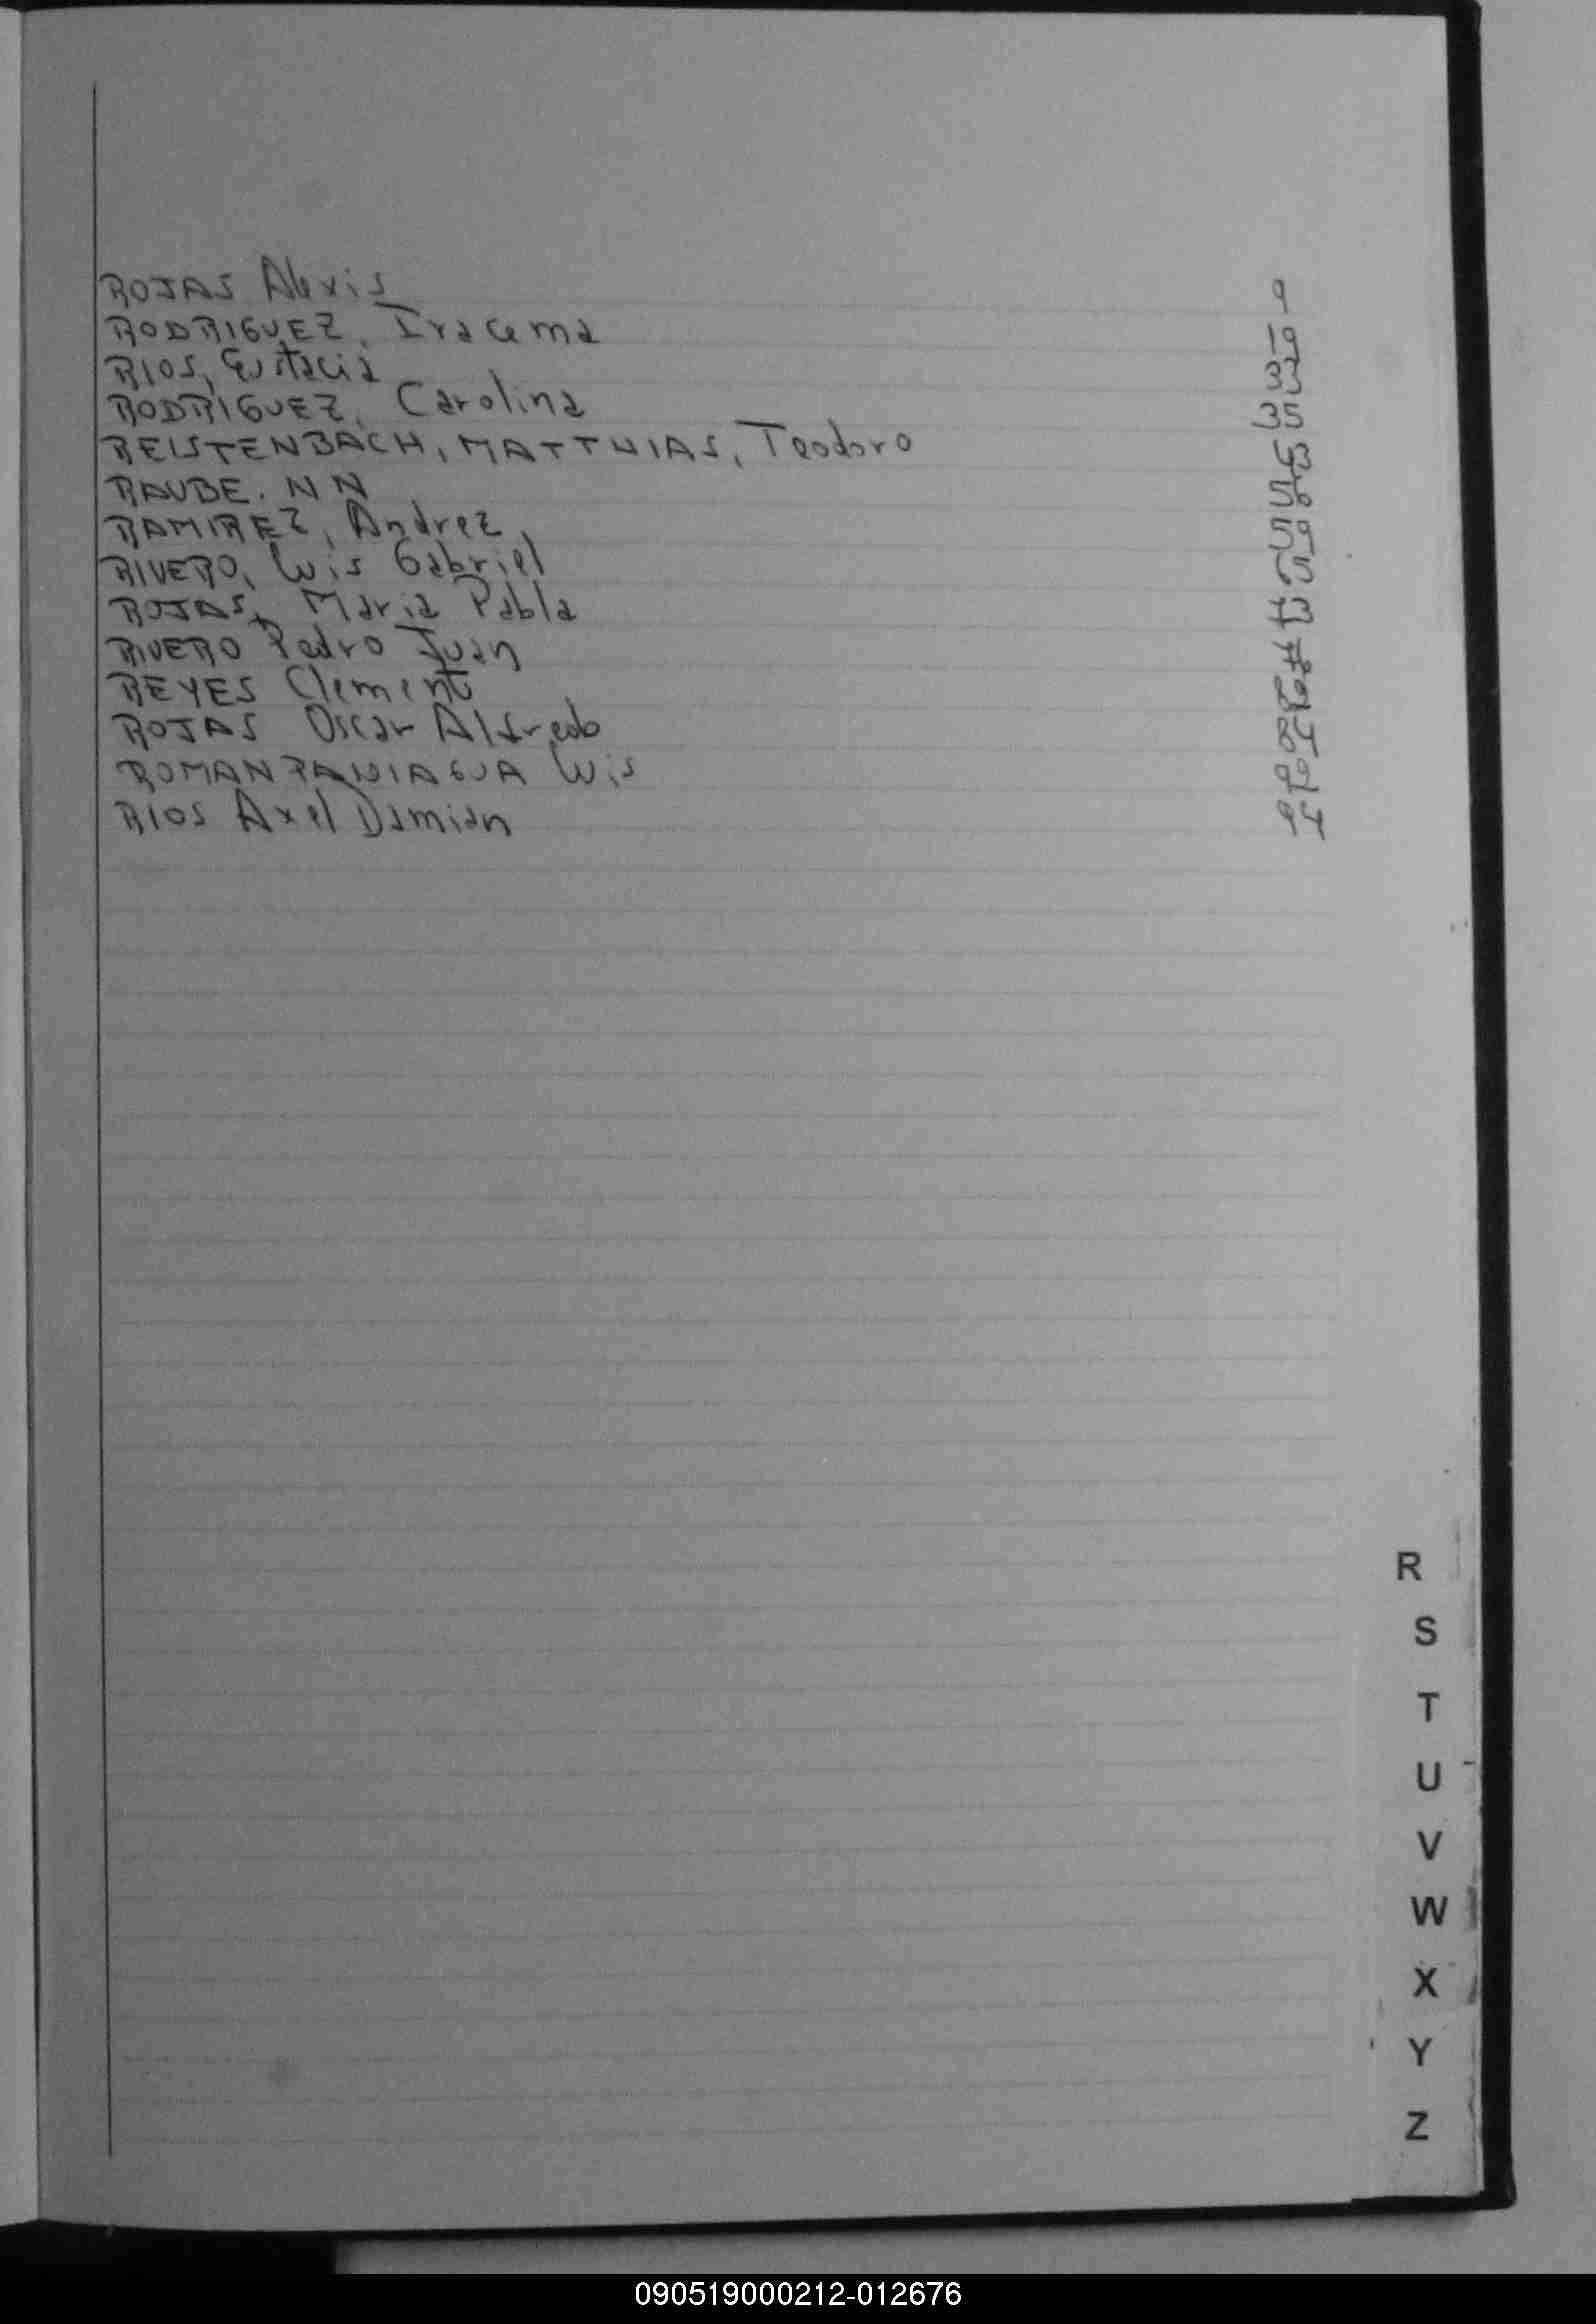 ROJAS Alexis 9
RODRIGUEZ, Iracema 19
RIOS, Eustacia 33
RODRIGUEZ, Carolina 35
REISTENBACH, MATTHIAS, Teodoro 53
RAUBE. NN 56
RAMIREZ, Andrez 59
RIVERO, Luis Gabriel 65
ROJAS, Maria Pabla 73
RIVERO Pedro Juan
REYES Clemente
ROJAS Oscar Alfredo
ROMAN PANIAGUA Luis
RIOS Axel Damian
R
S
T
U
V
W
X
Y
Z
090519000212-012676